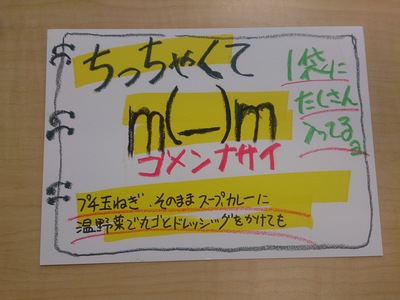 ちっちゃくて
m(__)m
ゴメンナサイ
1袋に
たくさん
入ってる
プチ玉ねぎ、そのままスープカレーに
温野菜でカゴとドレッシングをかけても